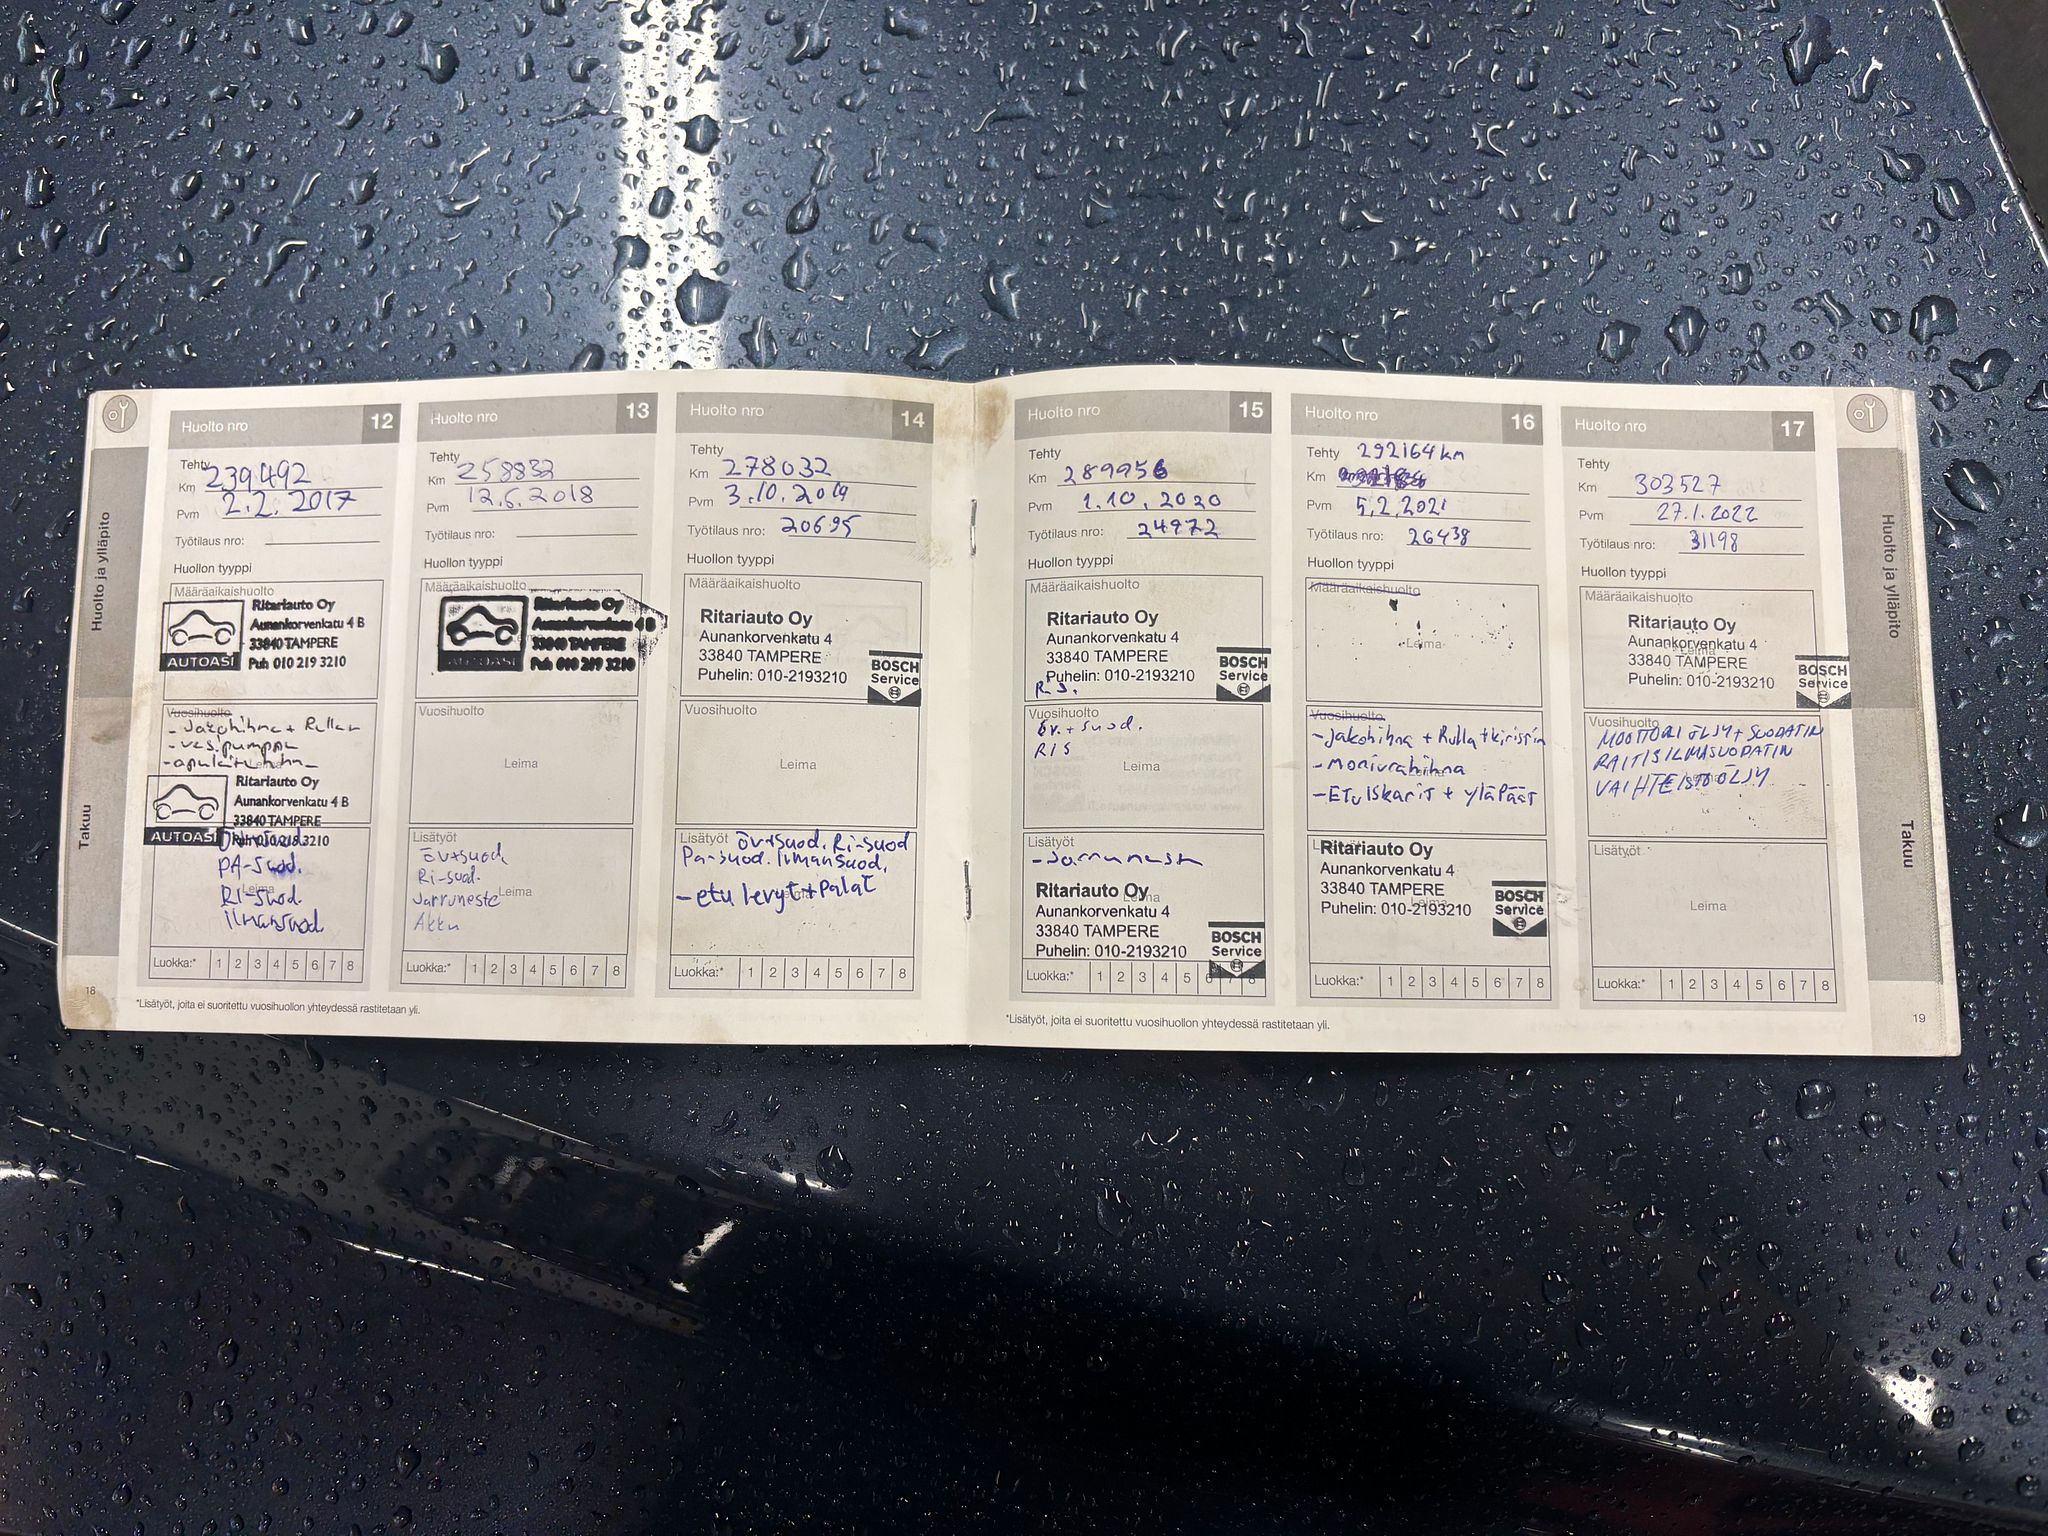 Huolto ja ylläpito
Takuu
Huolto nro 12
Tehty
Km 239492
Pvm 2.2.2017
Työtilaus nro:
Huollon tyyppi
Määräaikaishuolto
Ritariauto Oy
Aunankorvenkatu 4 B
33840 TAMPERE
AUTOASI Puh 010 219 3210
Vuosihuolto
- Jakohihna + Rullan
- vesipumppu
Ritariauto Oy
Aunankorvenkatu 4 B
33840 TAMPERE
AUTOASI Puh 010 219 3210
PA-suod.
Leima
RI-suod.
ilmansuod.
Luokka:* 1 2 3 4 5 6 7 8
18
*Lisätyöt, joita ei suoritettu vuosihuollon yhteydessä rastitetaan yli.
Huolto nro 13
Tehty
Km 258832
Pvm 12.6.2018
Työtilaus nro:
Huollon tyyppi
Määräaikaishuolto
Ritariauto Oy
Aunankorvenkatu 4 B
33840 TAMPERE
AUTOASI Puh 010 219 3210
Vuosihuolto
Leima
Lisätyöt
Öv+suod
Ri-suod.
Leima
Jarruneste
Akku
Luokka:* 1 2 3 4 5 6 7 8
Huolto nro 14
Tehty
Km 278032
Pvm 3.10.2019
Työtilaus nro: 20695
Huollon tyyppi
Määräaikaishuolto
Ritariauto Oy
Aunankorvenkatu 4
33840 TAMPERE
Puhelin: 010-2193210
BOSCH
Service
Vuosihuolto
Leima
Lisätyöt öv+suod. Ri-suod
Pa-suod. ilmansuod.
- etu levyt + palat
Leima
Luokka:* 1 2 3 4 5 6 7 8
Huolto nro 15
Tehty
Km 289956
Pvm 1.10.2020
Työtilaus nro: 24972
Huollon tyyppi
Määräaikaishuolto
Ritariauto Oy
Aunankorvenkatu 4
33840 TAMPERE
Puhelin: 010-2193210
BOSCH
Service
R.S.
Vuosihuolto
öv. + suod.
RIS
Leima
Lisätyöt
- Jarruneste
Ritariauto Oy
Leima
Aunankorvenkatu 4
33840 TAMPERE
Puhelin: 010-2193210
BOSCH
Service
Luokka:* 1 2 3 4 5 6 7 8
*Lisätyöt, joita ei suoritettu vuosihuollon yhteydessä rastitetaan yli.
Huolto nro 16
Tehty 292164 km
Km
Pvm 5.2.2021
Työtilaus nro: 26438
Huollon tyyppi
Määräaikaishuolto
Leima
Vuosihuolto
- Jakohihna + Rulla + kiristin
- moniurahihna
Leima
- ETU iskarit + yläpäät
Lisätyöt
Ritariauto Oy
Aunankorvenkatu 4
33840 TAMPERE
Leima
Puhelin: 010-2193210
BOSCH
Service
Luokka:* 1 2 3 4 5 6 7 8
Huolto nro 17
Tehty
Km 303527
Pvm 27.1.2022
Työtilaus nro: 31198
Huollon tyyppi
Määräaikaishuolto
Ritariauto Oy
Aunankorvenkatu 4
Leima
33840 TAMPERE
Puhelin: 010-2193210
BOSCH
Service
Vuosihuolto
MOOTTORI ÖLJY + SUODATIN
RAITISILMASUODATIN
VAIHTEISTOÖLJY
Leima
Lisätyöt
Leima
Luokka:* 1 2 3 4 5 6 7 8
19
Huolto ja ylläpito
Takuu